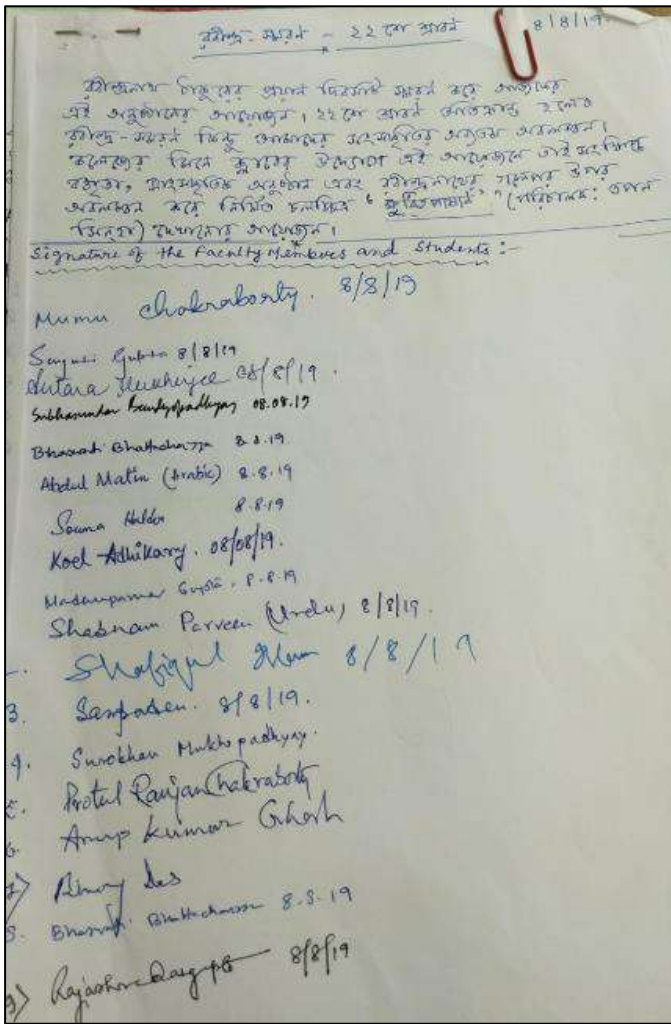 রবীন্দ্র-স্মরণ - ২২ শে শ্রাবণ
8/8/19
রবীন্দ্রনাথ ঠাকুরের প্রয়াণ দিবসটি স্মরণ করে আজকের
এই অনুষ্ঠানের আয়োজন। ২২ শে শ্রাবণ অতিক্রান্ত হলেও
রবীন্দ্র-স্মরণ কিন্তু আমাদের সংস্কৃতির অন্যতম অবলম্বন।
কলেজের সিনে ক্লাবের উদ্যোগে এই আয়োজনে তাই সংক্ষিপ্ত
বক্তৃতা, সাংস্কৃতিক অনুষ্ঠান এবং রবীন্দ্রনাথের গল্পের উপর
অবলম্বন করে নির্মিত চলচ্চিত্র "ক্ষুধিত পাষাণ" (পরিচালক: তপন
সিনহা) দেখানোর আয়োজন।
Signature of the Faculty Members and Students :-
Mumu Chakraborty. 8/8/19
Gupta 8/8/19
Antara Mukherjee 08/8/19.
Subhasundar Bandyopadhyay 08.08.19
Bhaswati Bhattacharyya 8.8.19
Abdul Matin (Arabic) 8.8.19
Souma Halder 8.8.19
Koel Adhikary. 08/08/19.
Madhuparna Gupta. 8.8.19
Shabnam Parveen (Urdu) 8/8/19.
Shafiqul Alam 8/8/19
3. Sampa Sen. 8/8/19.
4. Mukhopadhyay.
5. Protul Ranjan Chakraborty
6. Anup Kumar Ghosh
7) Das
8. Bhaswati Bhattacharyya 8.8.19
9) Dasgupta 8/8/19